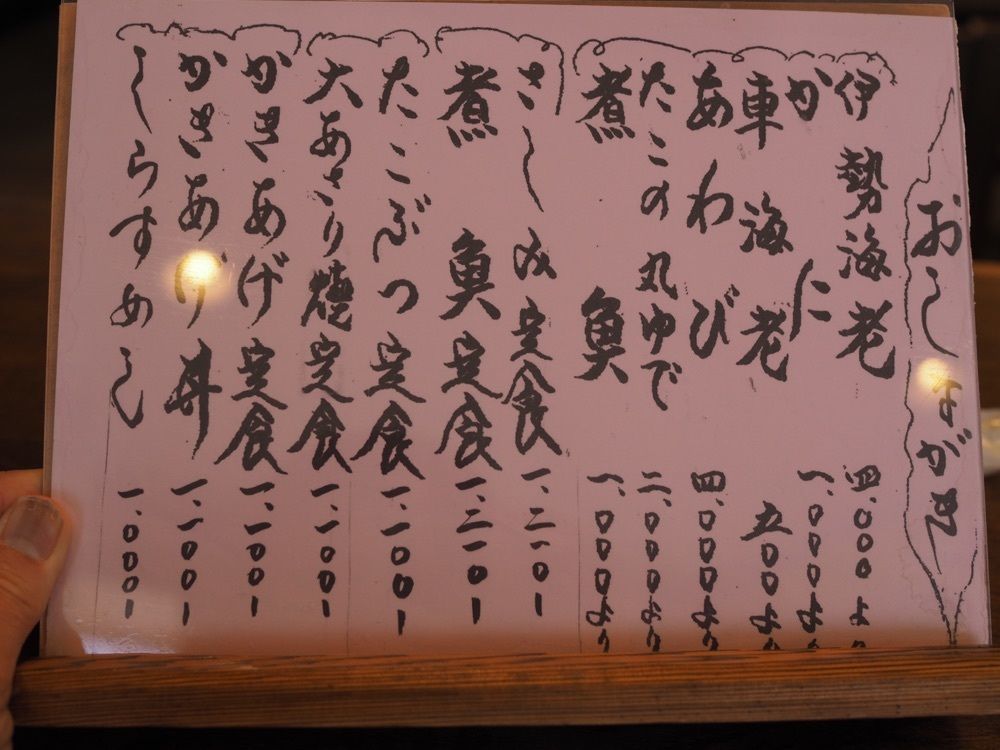 おしながき
伊勢海老 四、〇〇〇より
かに 一、〇〇〇より
車海老 五〇〇より
あわび 四、〇〇〇より
たこの丸ゆで 二、〇〇〇より
煮魚 一、〇〇〇より
さしみ定食 一、二一〇ー
煮魚定食 一、二一〇ー
たこぶつ定食 一、一〇〇ー
大あさり焼定食 一、一〇〇ー
かきあげ定食 一、一〇〇ー
かきあげ丼 一、一〇〇ー
しらすめし 一、〇〇〇ー